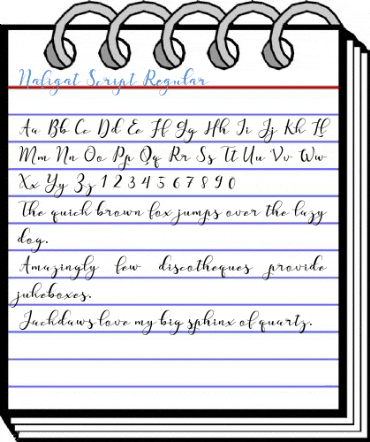 Nafigat Script Regular
Aa Bb Cc Dd Ee Ff Gg Hh Ii Jj Kk Ll
Mm Nn Oo Pp Qq Rr Ss Tt Uu Vv Ww
Xx Yy Zz 1 2 3 4 5 6 7 8 9 0
The quick brown fox jumps over the lazy
dog.
Amazingly few discotheques provide
jukeboxes.
Jackdaws love my big sphinx of quartz.